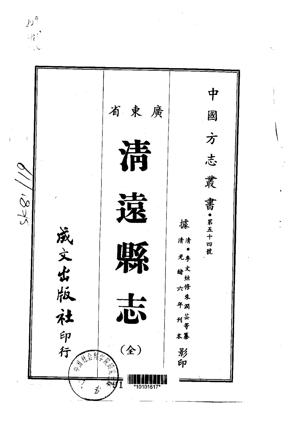 中國方志叢書・第五十四號
據清・李文烜修朱潤芸等纂
清光緒六年刊本影印
廣東省
清遠縣志
(全)
成文出版社印行
*10101617*